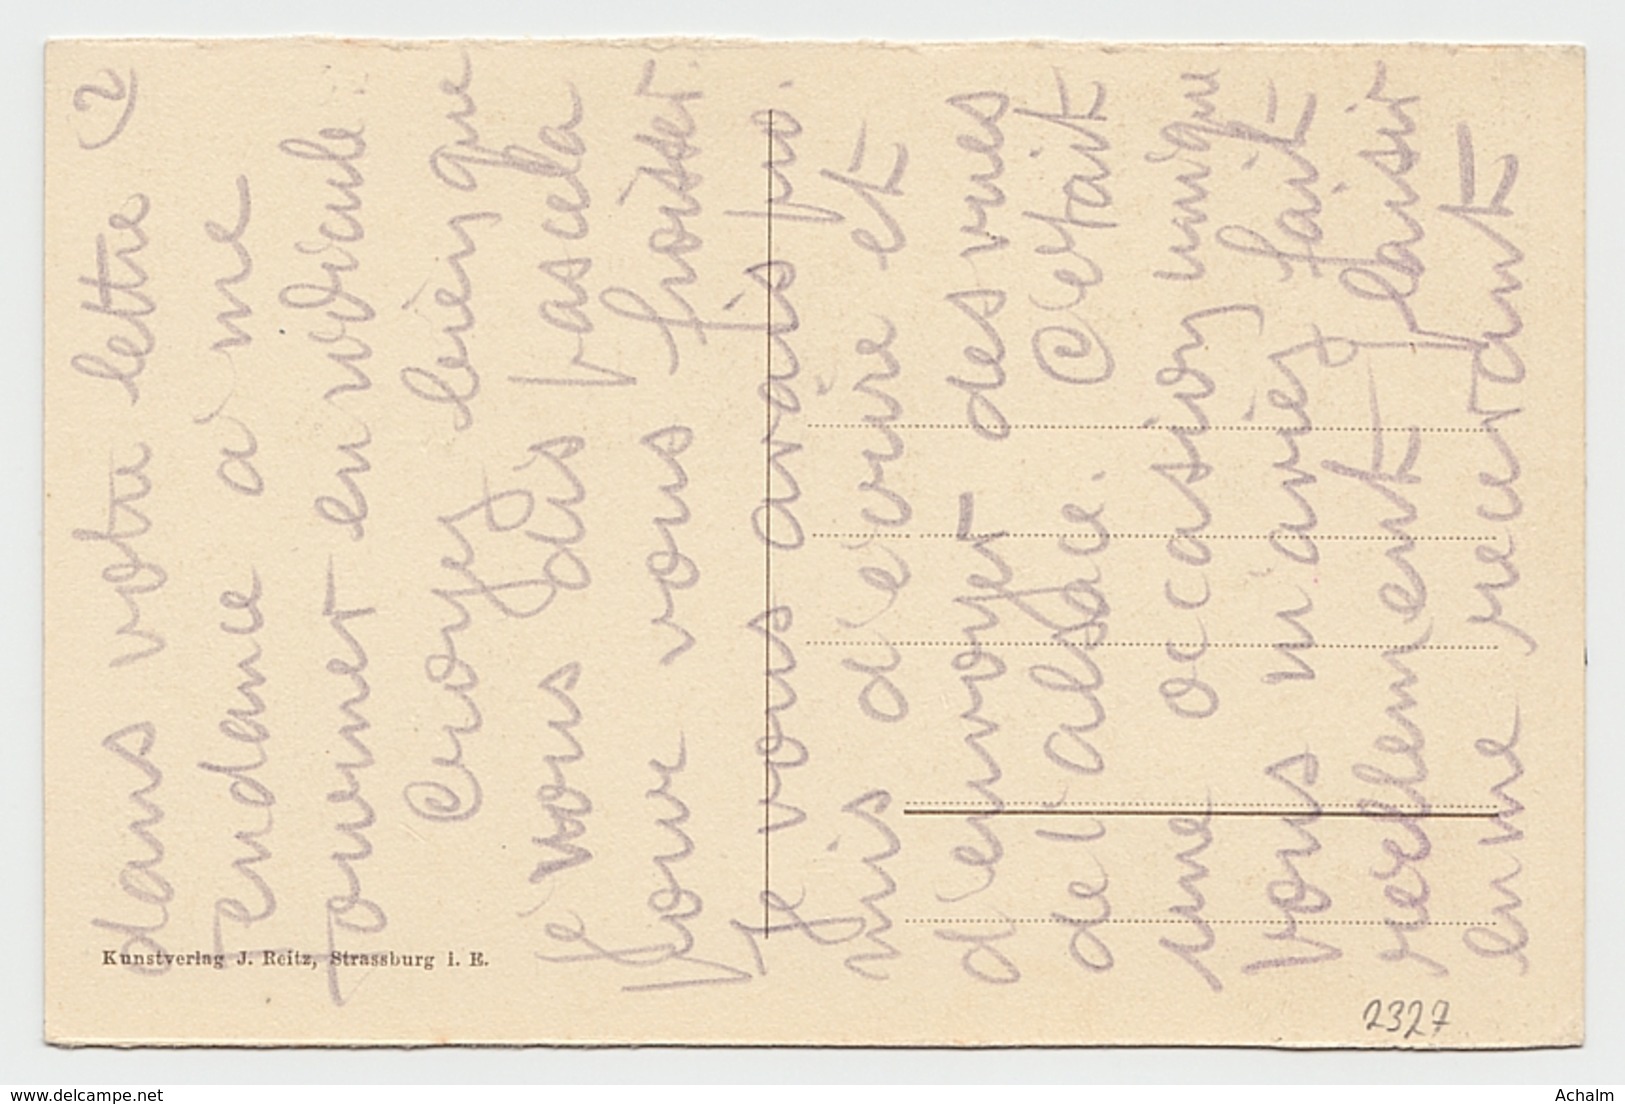 2)
dans votre lettre
Tendance a me
Tourner en ridicule
Croyez bien que
je vous dis pas cela
pour vous froisser.
Je vous avais pro.
mis d'ecrire et
d'envoyer des vues
de l'alsace. C'etait
une occasion unique
vous m'aviez fait
reellement plaisir
en me recevant
Kunstverlag J. Reitz, Strassburg i. E.
2327
delcampe.net
Achalm